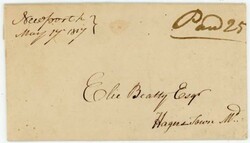 Newport
May 17th 1817
Paid 25
Elie Beatty Esqr
Hagers Town Md